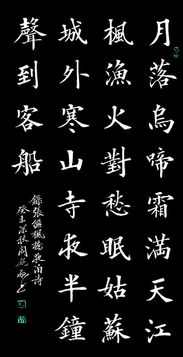 月落烏啼霜滿天江
楓漁火對愁眠姑蘇
城外寒山寺夜半鐘
聲到客船
錄張繼楓橋夜泊詩
癸未深秋周